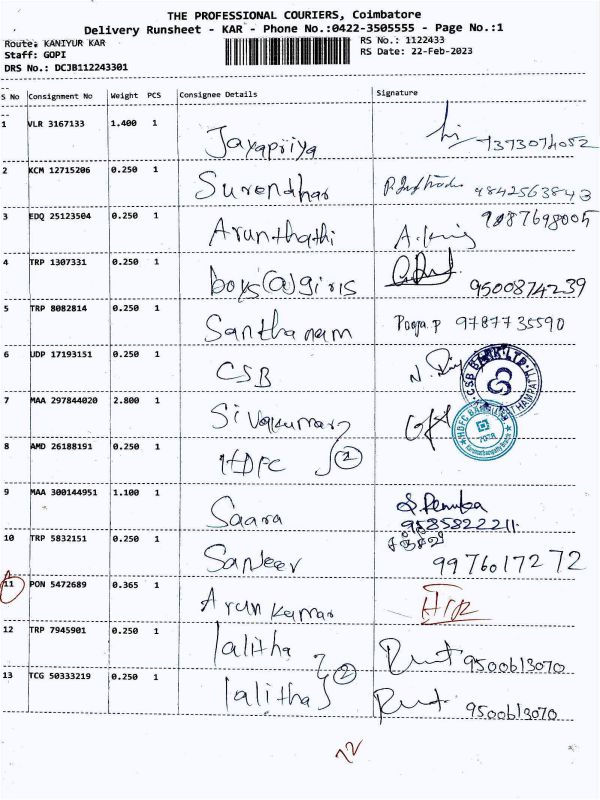 THE PROFESSIONAL COURIERS, Coimbatore
Delivery Runsheet - KAR - Phone No.:0422-3505555 - Page No.:1
Route: KANIYUR KAR RS No.: 1122433
Staff: GOPI RS Date: 22-Feb-2023
DRS No.: DCJB112243301
S No Consignment No Weight PCS Consignee Details Signature
1 VLR 3167133 1.400 1 Jayapriya 7373074052
2 KCM 12715206 0.250 1 Surendhar 9842563843
3 EDQ 25123504 0.250 1 Arunthathi 9087698005
4 TRP 1307331 0.250 1 boys(a)girls 9500874239
5 TRP 8082814 0.250 1 Santhanam Pooja.p 9787735590
6 UDP 17193151 0.250 1 CSB CSB BANK LTD.
7 MAA 297844020 2.800 1 Sivakumar HDFC BANK LTD
8 AMD 26188191 0.250 1 HDFC 2
9 MAA 300144951 1.100 1 Saara S. Renuka
9585822211
10 TRP 5832151 0.250 1 Sanjeev 9976017272
11 PON 5472689 0.365 1 Arun kumar
12 TRP 7945901 0.250 1 lalitha 9500613070
2
13 TCG 50333219 0.250 1 lalitha 9500613070
12